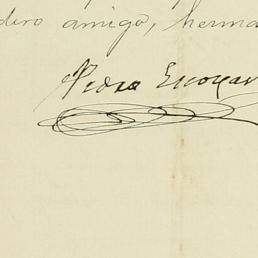 dero amigo, herma
Pedro Escovar